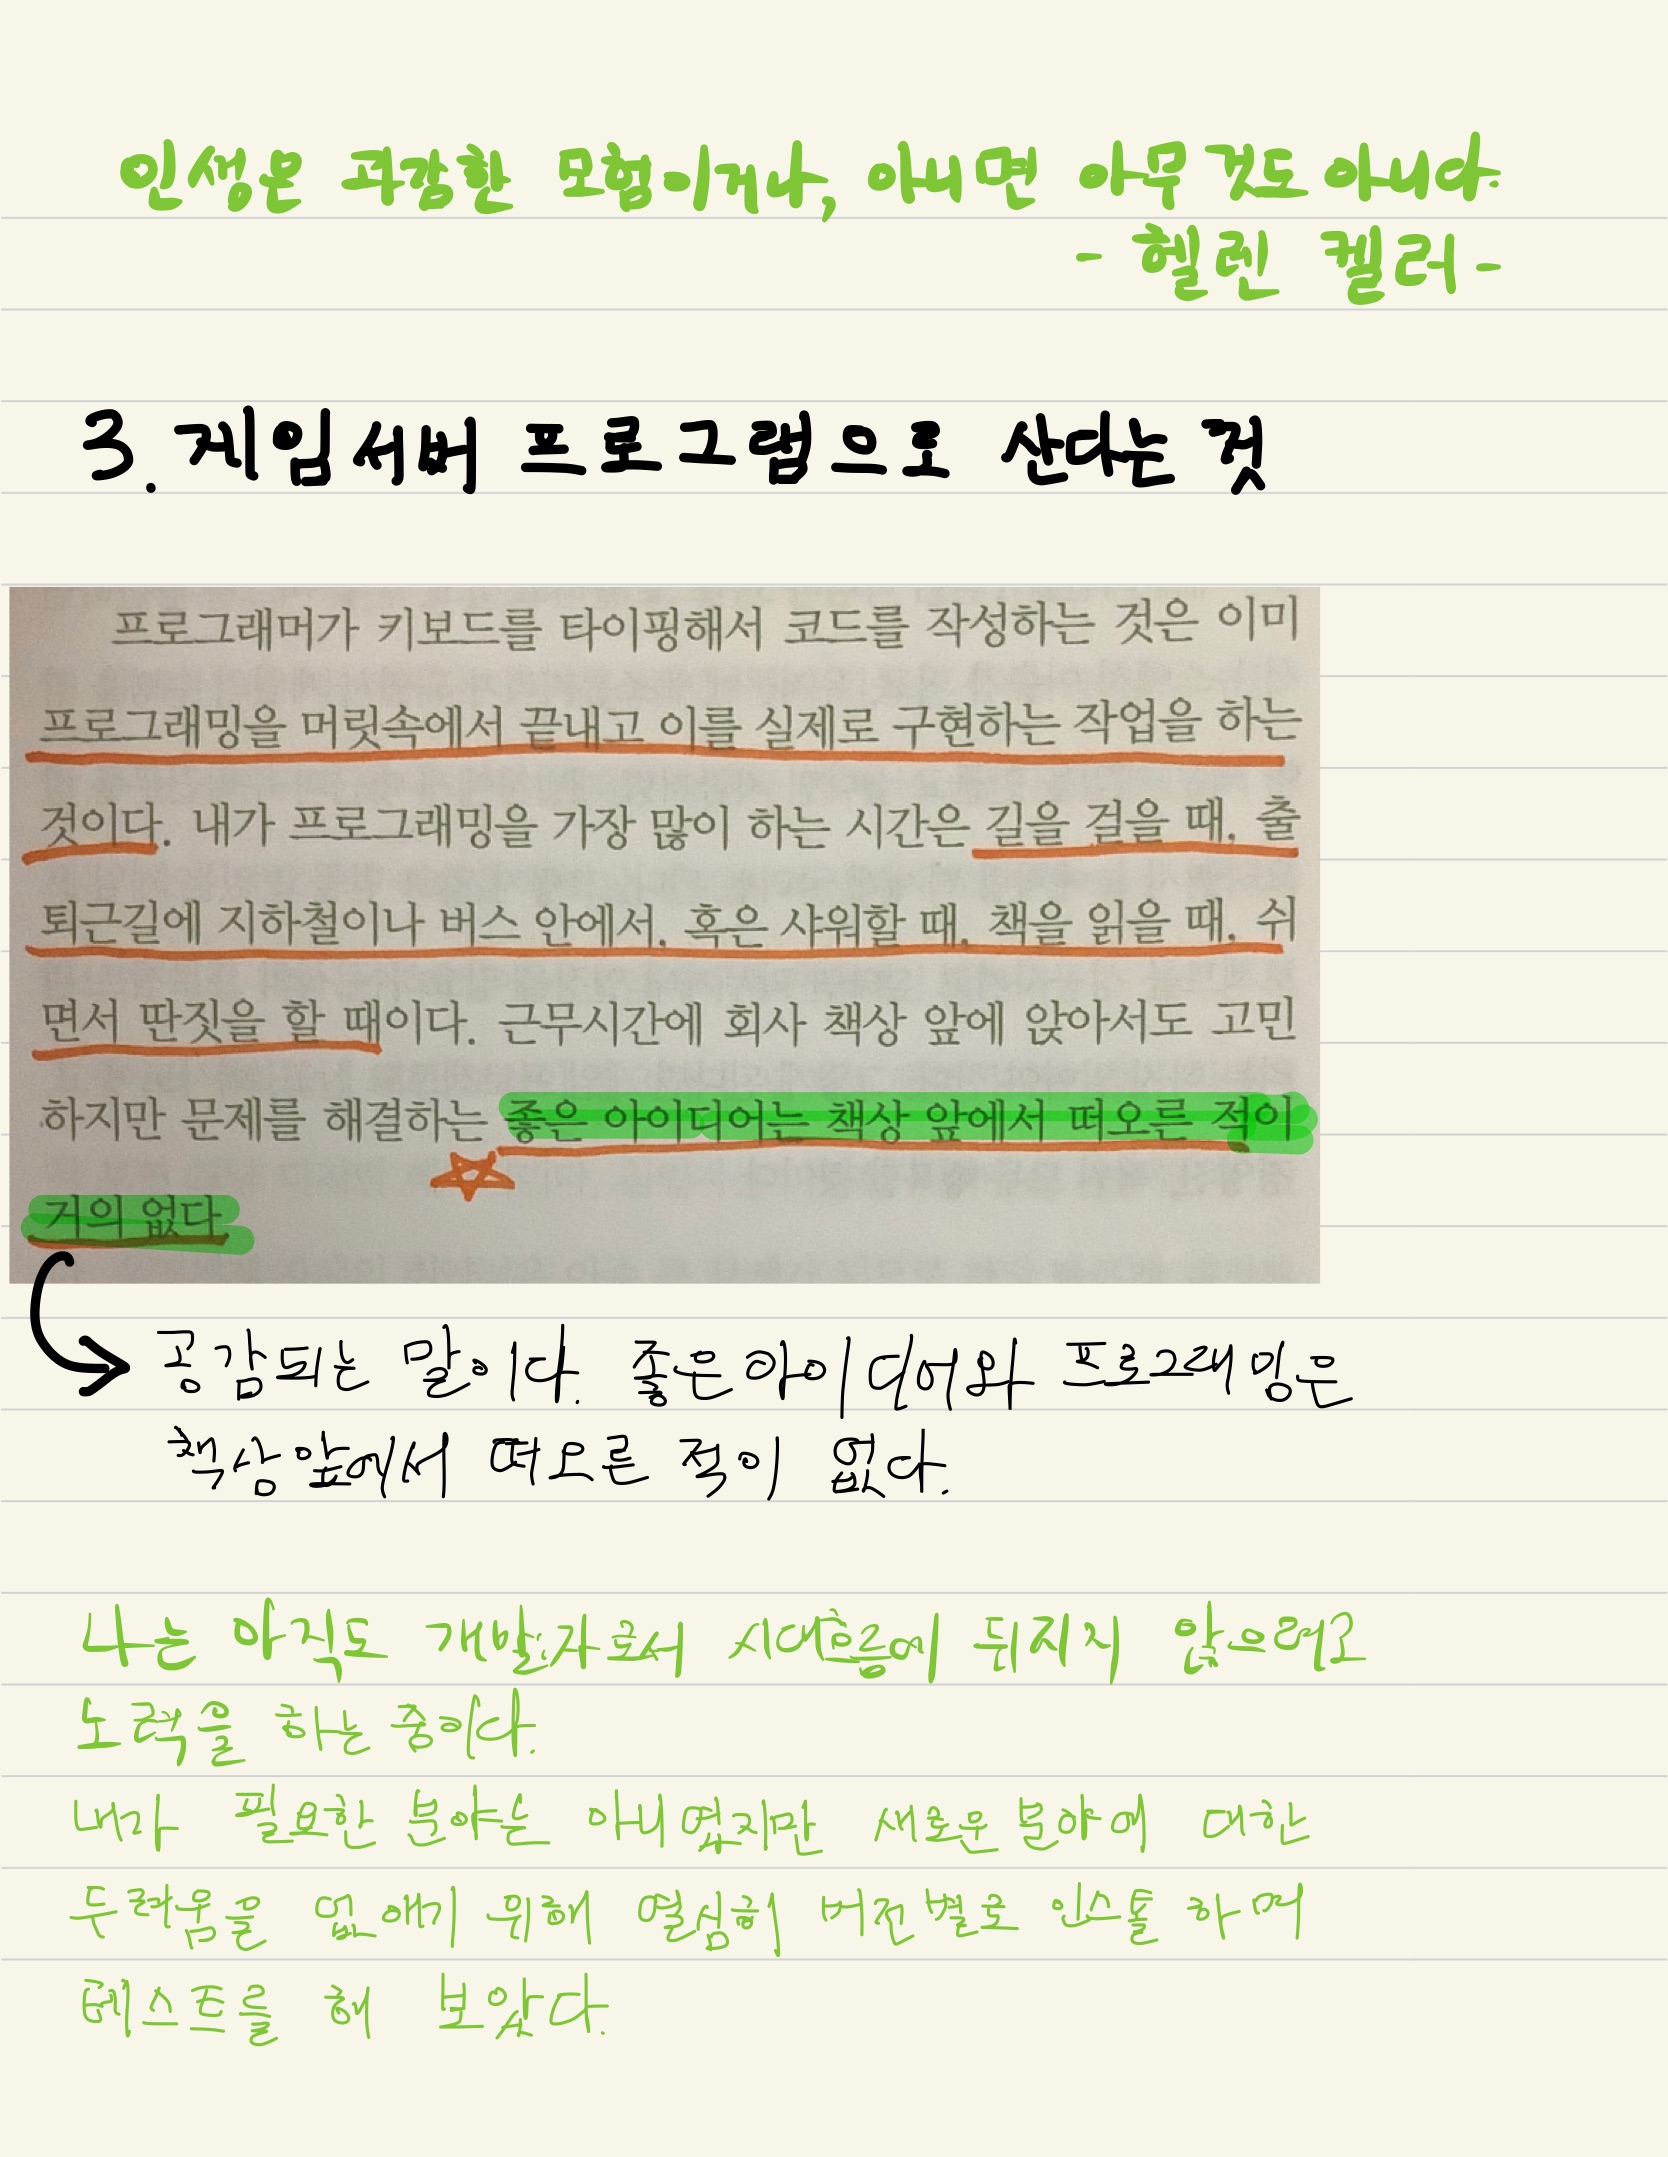 인생은 과감한 모험이거나, 아니면 아무 것도 아니다.
- 헬렌 켈러 -
3. 게임서버 프로그램으로 산다는 것
프로그래머가 키보드를 타이핑해서 코드를 작성하는 것은 이미
프로그래밍을 머릿속에서 끝내고 이를 실제로 구현하는 작업을 하는
것이다. 내가 프로그래밍을 가장 많이 하는 시간은 길을 걸을 때, 출
퇴근길에 지하철이나 버스 안에서, 혹은 샤워할 때, 책을 읽을 때, 쉬
면서 딴짓을 할 때이다. 근무시간에 회사 책상 앞에 앉아서도 고민
하지만 문제를 해결하는 좋은 아이디어는 책상 앞에서 떠오른 적이
거의 없다
공감되는 말이다. 좋은 아이디어와 프로그래밍은
책상 앞에서 떠오른 적이 없다.
나는 아직도 개발자로서 시대흐름에 뒤지지 않으려고
노력을 하는 중이다.
내가 필요한 분야는 아니였지만 새로운 분야에 대한
두려움을 없애기 위해 열심히 버전별로 인스톨 하며
테스트를 해 보았다.